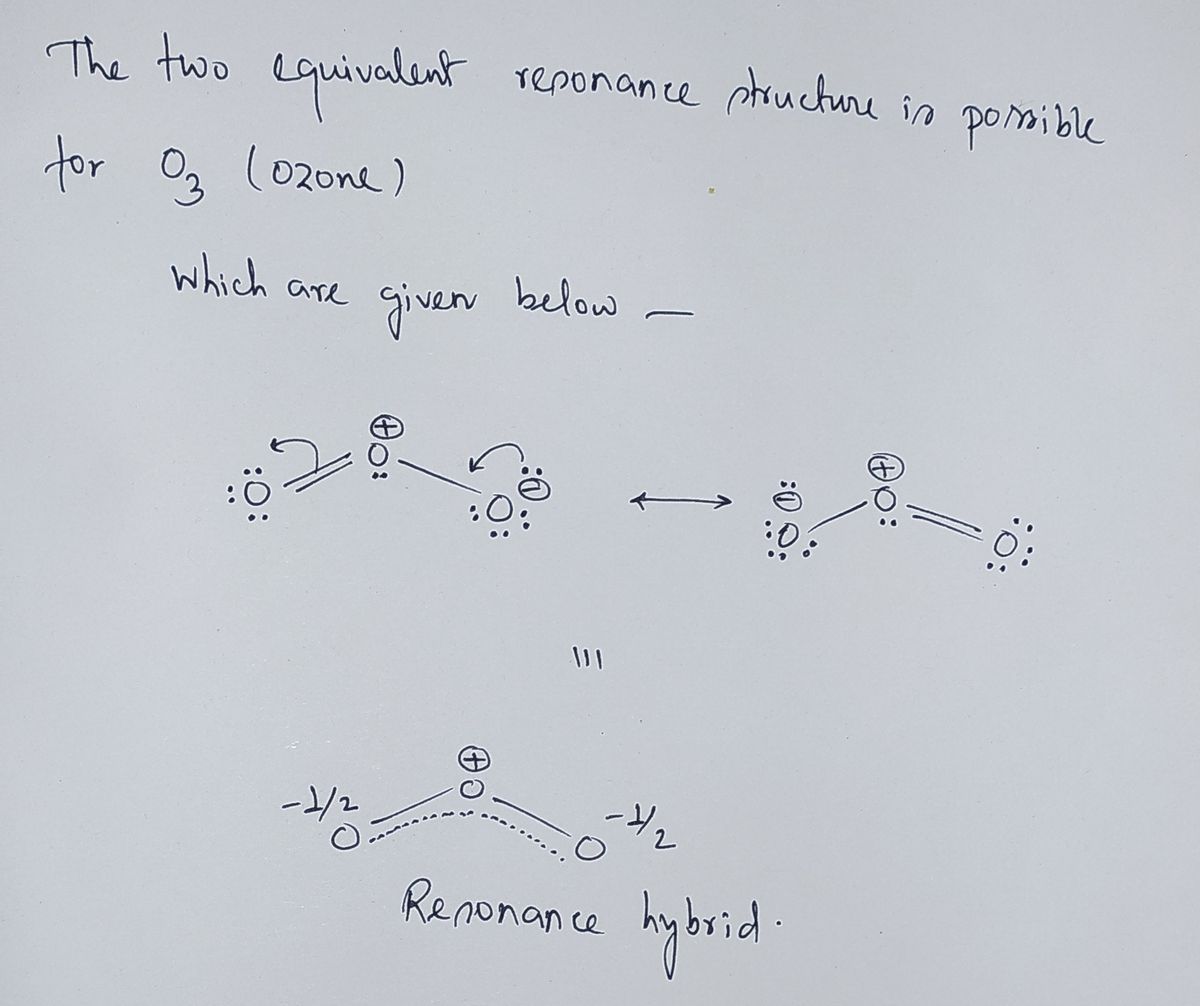 The two equivalent resonance structure is possible
for O₃ (ozone)
Which are given below —
:Ö = O⊕ — O:⊖ ⟷ ⊖:O: — O⊕ = O:
III
-1/2 O — O⊕ — O -1/2
Resonance hybrid.